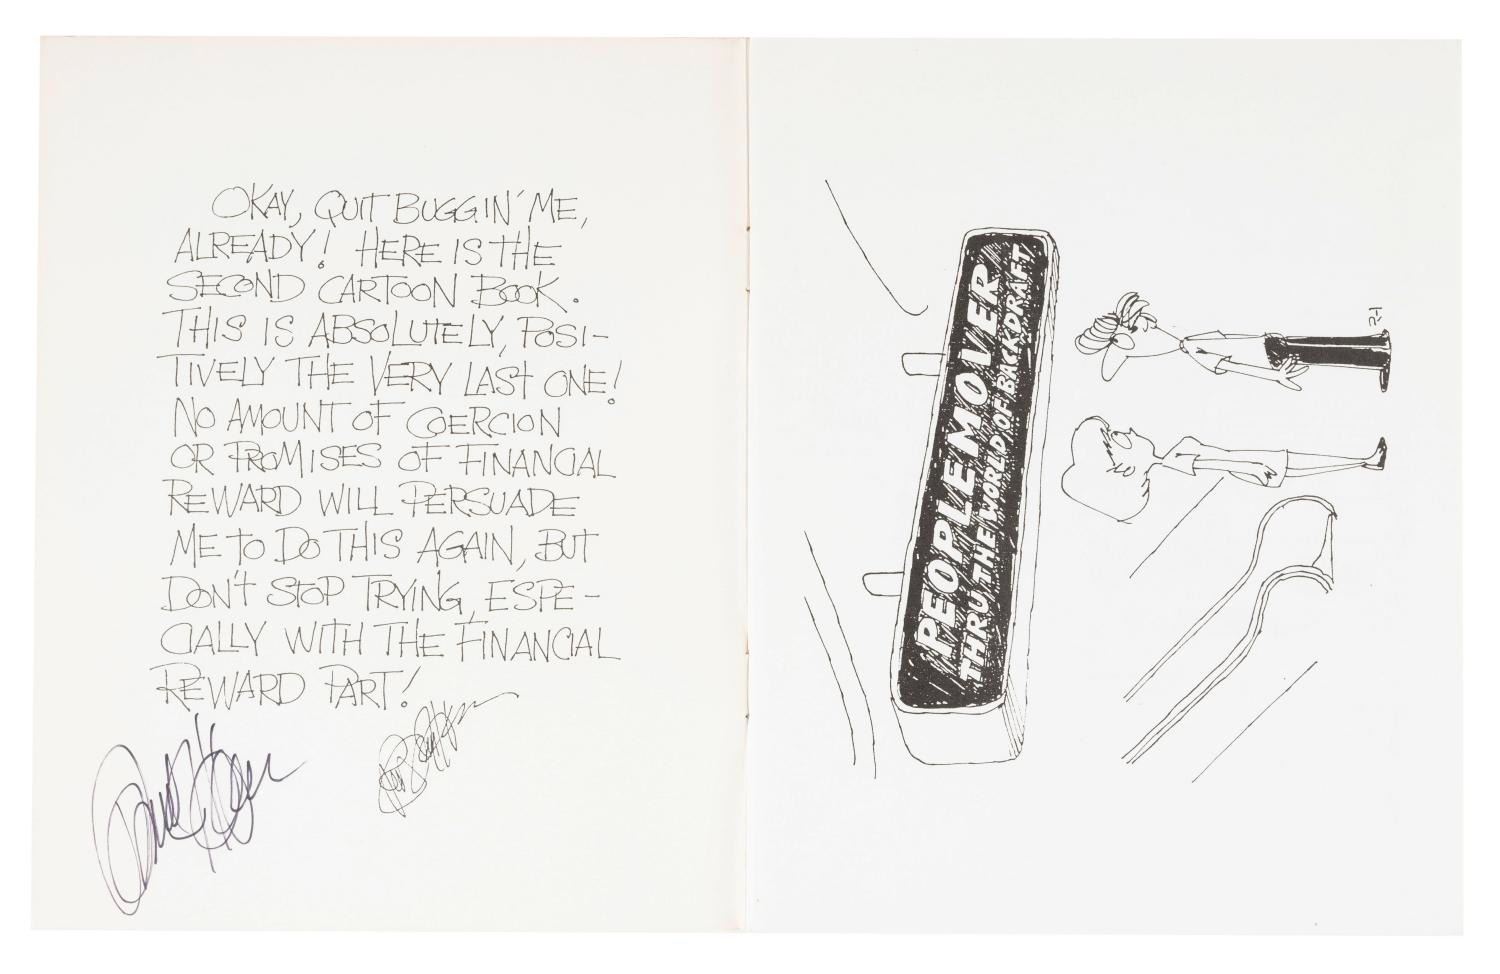 OKAY, QUIT BUGGIN' ME,
ALREADY! HERE IS THE
SECOND CARTOON BOOK.
THIS IS ABSOLUTELY, POSI-
TIVELY THE VERY LAST ONE!
NO AMOUNT OF COERCION
OR PROMISES OF FINANCIAL
REWARD WILL PERSUADE
ME TO DO THIS AGAIN, BUT
DON'T STOP TRYING, ESPE-
CIALLY WITH THE FINANCIAL
REWARD PART!
PEOPLEMOVER
THRU THE WORLD OF BACKDRAFT